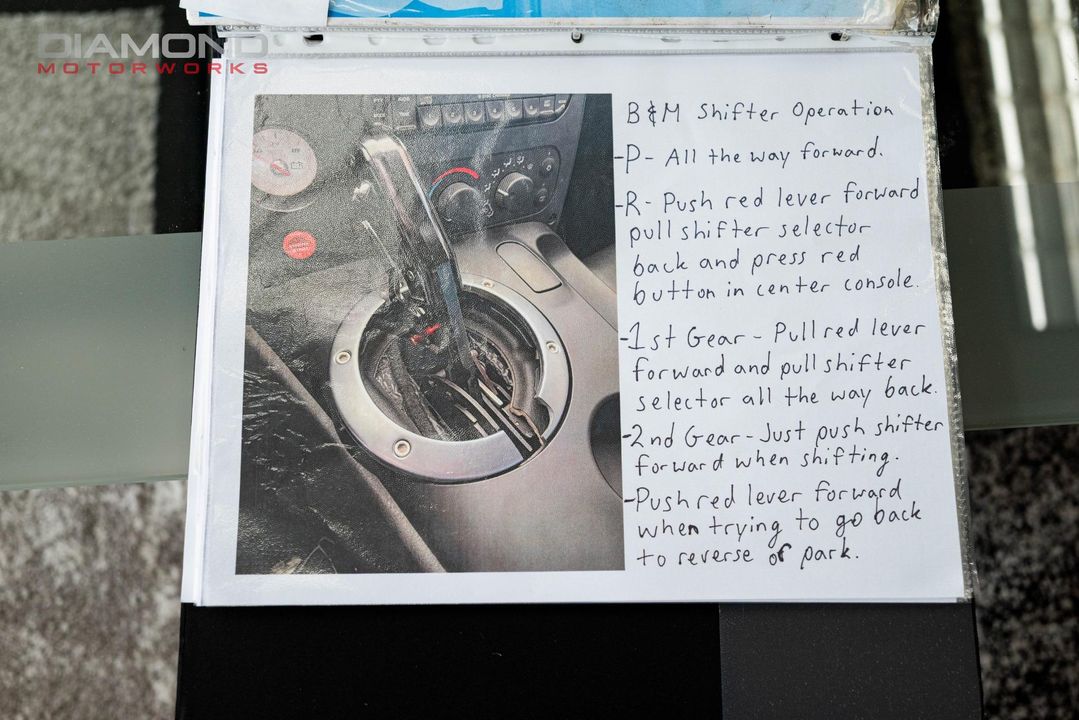 DIAMOND
MOTORWORKS
B&M Shifter Operation
-P- All the way forward.
-R- Push red lever forward
pull shifter selector
back and press red
button in center console.
-1st Gear - Pull red lever
forward and pull shifter
selector all the way back.
-2nd Gear - Just push shifter
forward when shifting.
-Push red lever forward
when trying to go back
to reverse or park.